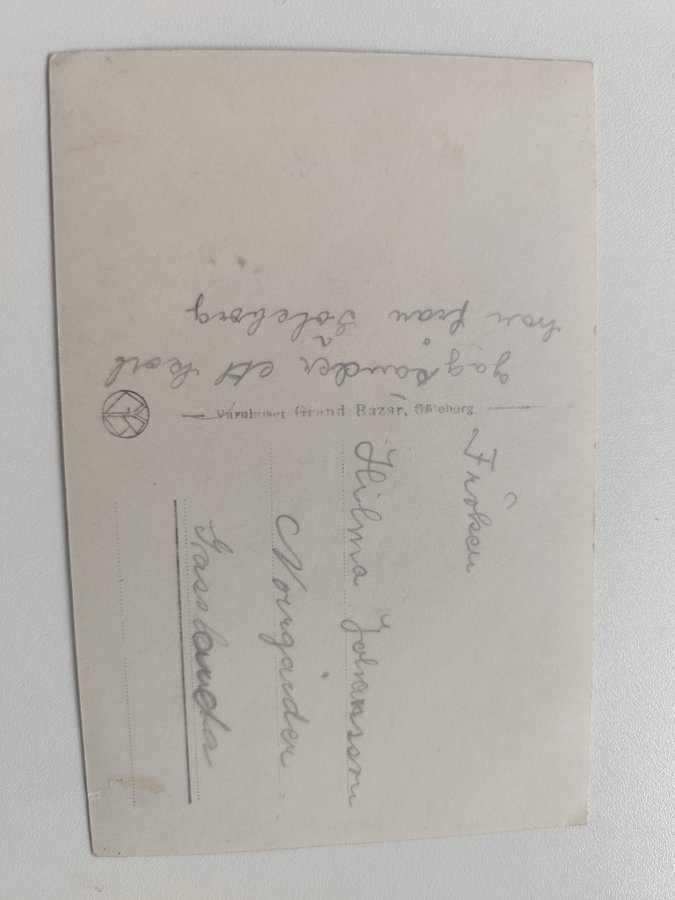 jag sänder ett kort
hem från Göteborg
Varuhuset Grand Bazar, Göteborg.
Fröken
Hilma Johansson
Norrgården